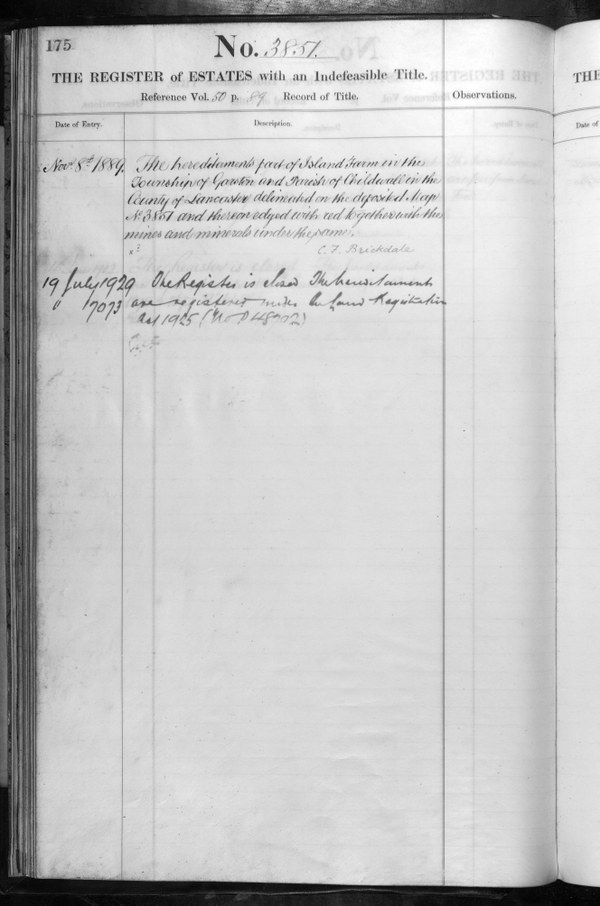 175
No. 3851.
THE REGISTER of ESTATES with an Indefeasible Title.
Reference Vol. 50 p. 89 Record of Title.
Observations.
Date of Entry.
Description.
Novr 8th 1889. The hereditaments part of Island Farm in the
Township of Garston and Parish of Childwall in the
County of Lancaster delineated on the deposited Map
No 3851 and thereon edged with red together with the
mines and minerals under the same.
C. F. Brickdale
19 July 1929 The Register is closed The hereditaments
" 17073 are registered under the Land Registration
Act 1925 (No P 48702)
THE
Date of